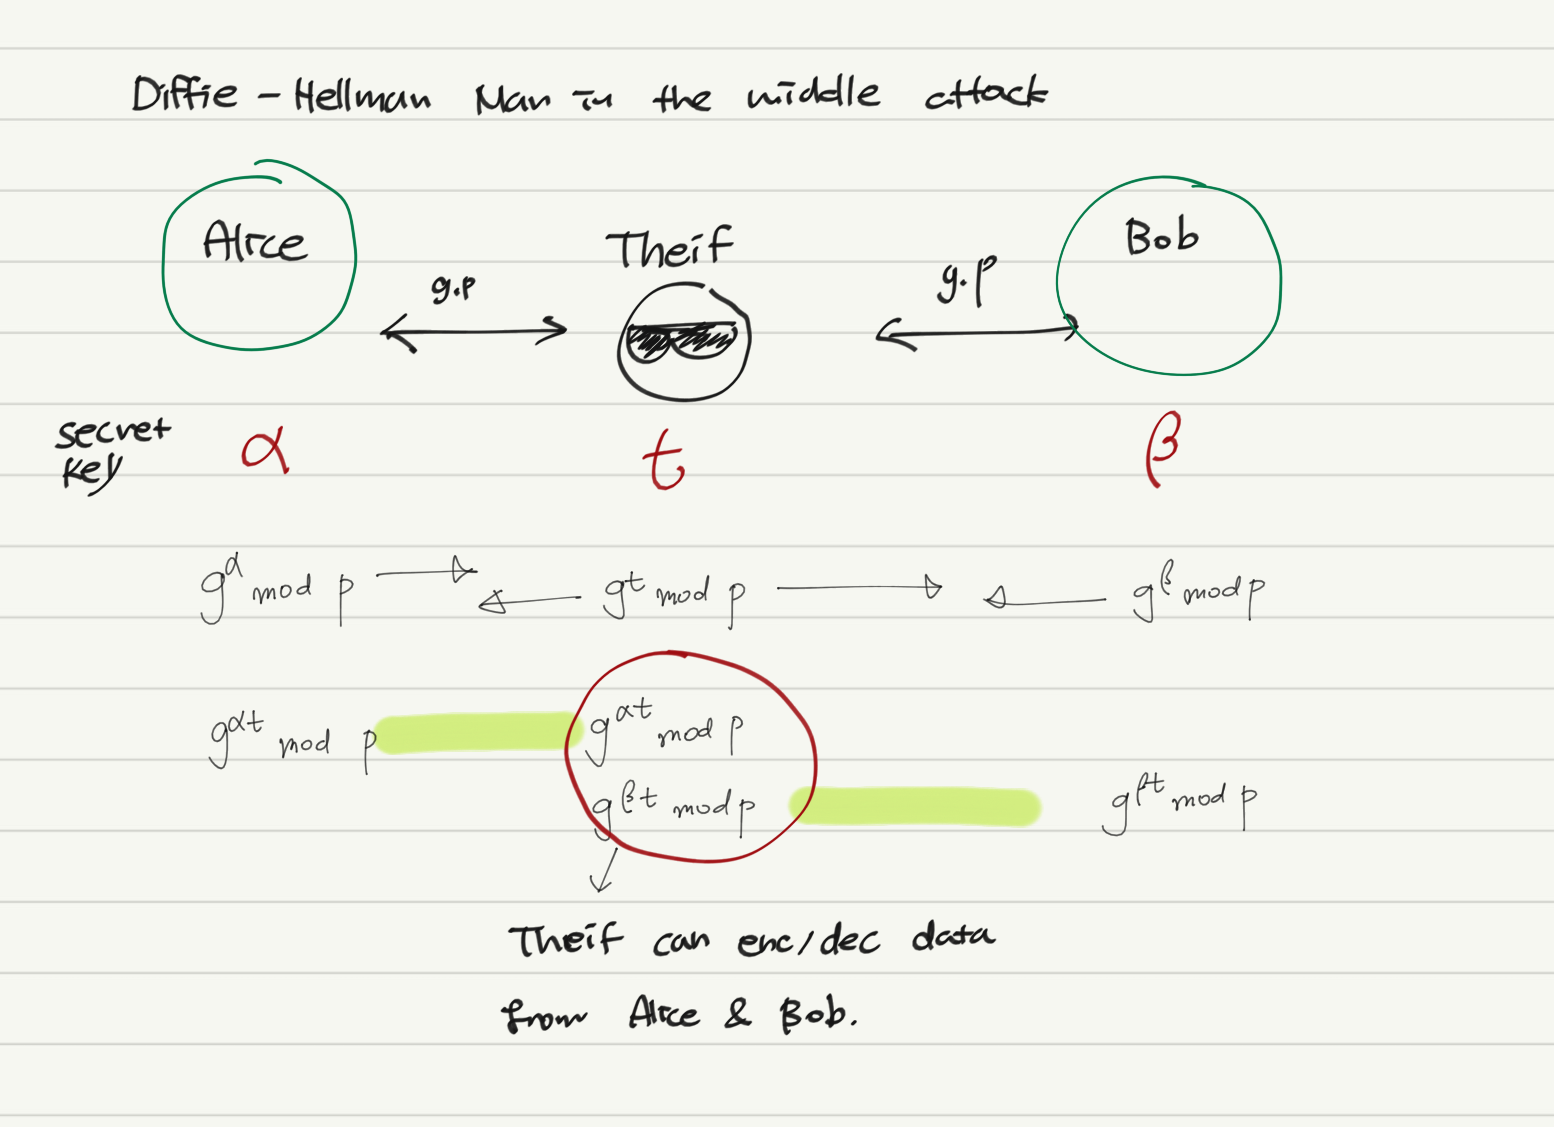 Diffie - Hellman Man in the middle attack
Alice
Theif
Bob
g.p
g.p
secret key
α
t
β
g^α mod p
g^t mod p
g^β mod p
g^αt mod p
g^αt mod p
g^βt mod p
g^βt mod p
Theif can enc/dec data
from Alice & Bob.